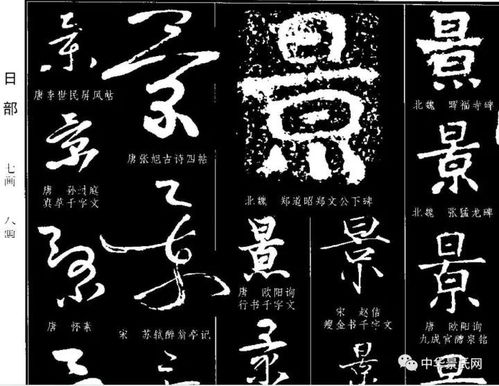 日部
七画 八画
景
唐李世民屏风帖
景
唐 孙过庭
真草千字文
景
唐 怀素
景
唐张旭古诗四帖
景
宋 苏轼醉翁亭记
景
北魏 郑道昭郑文公下碑
景
唐 欧阳询
行书千字文
景
宋 赵佶
瘦金书千字文
景
景
北魏 晖福寺碑
景
北魏 张猛龙碑
景
唐 欧阳询
九成宫醴泉铭
景
中华景氏网